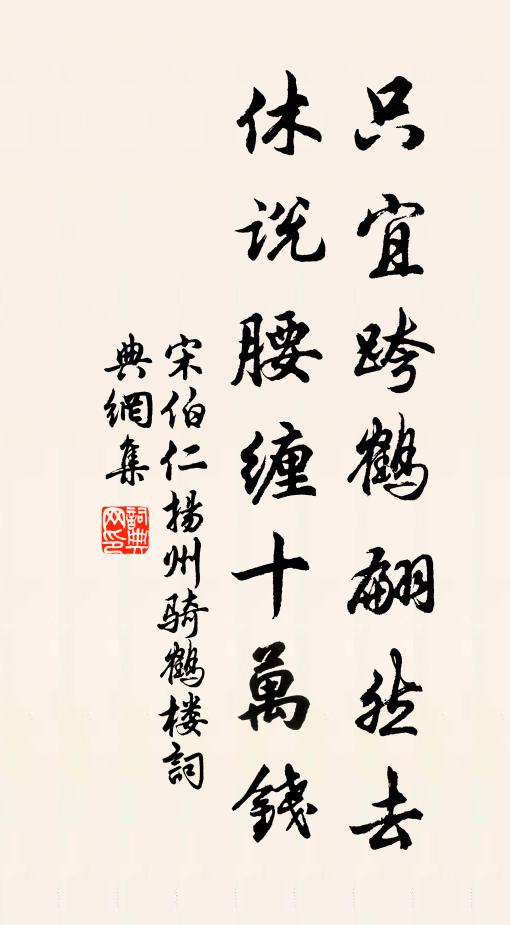 只宜跨鶴翩然去
休説腰纏十萬錢
宋伯仁揚州骑鶴楼詞
典網集
詞典
网印